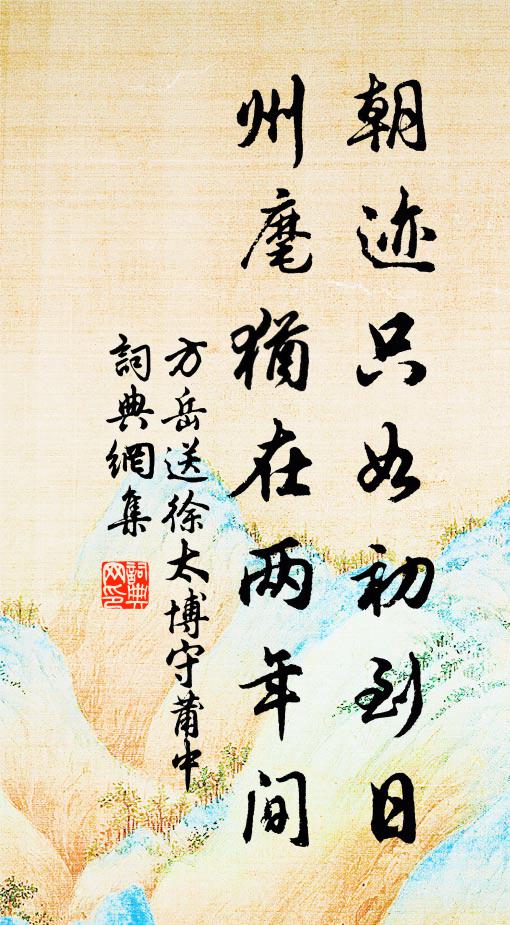 朝迹只如初到日
州麾犹在两年间
方岳送徐太博守莆中
詞典網集
詞典网印